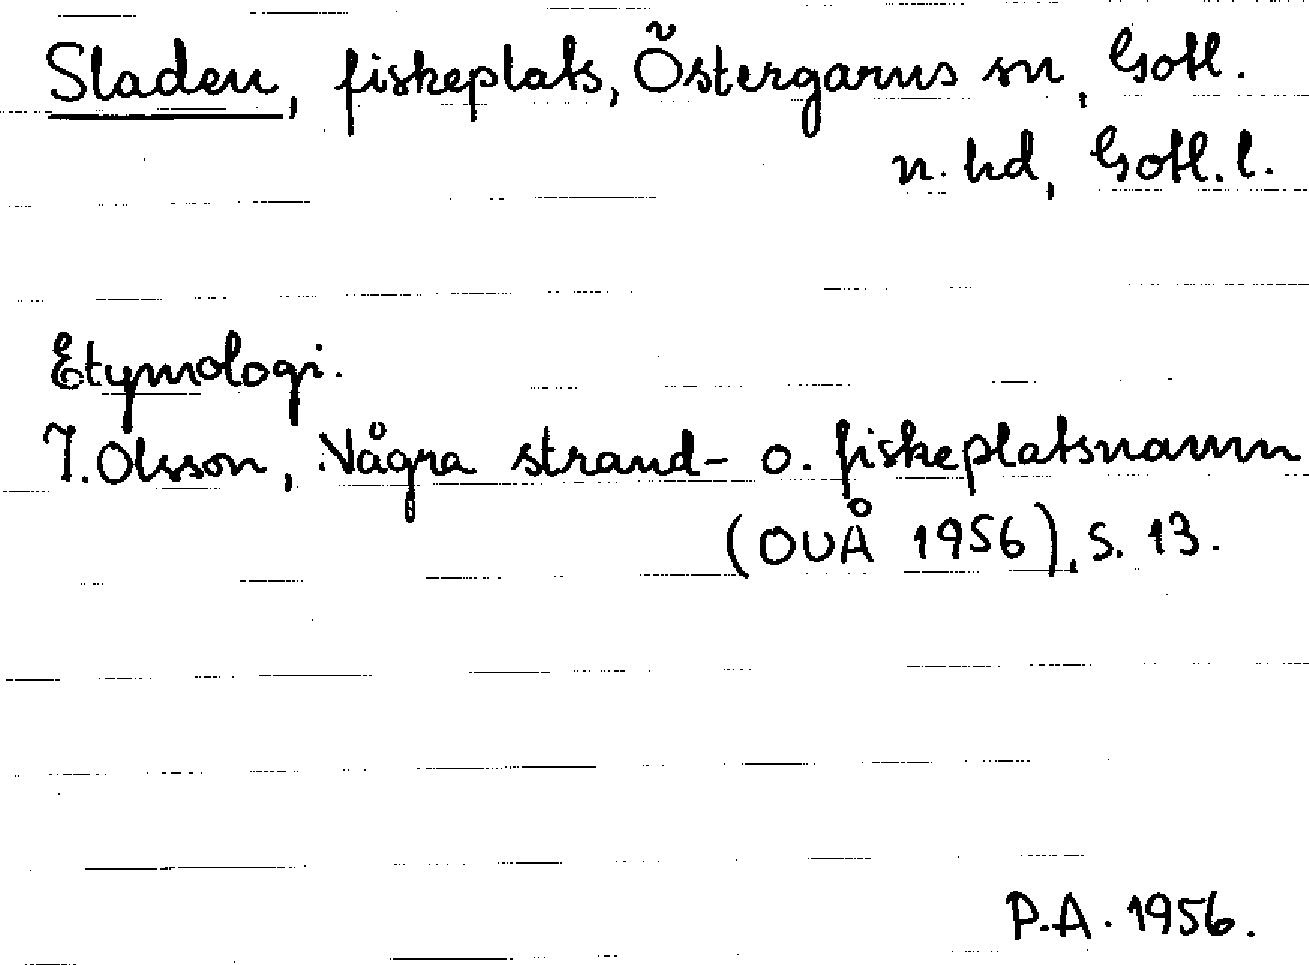 Sladen, fiskeplats, Östergarns sn, Gotl.
n. hd, Gotl. l.
Etymologi.
I. Olsson, Några strand- o. fiskeplatsnamn
(OUÅ 1956), s. 13.
P.A. 1956.